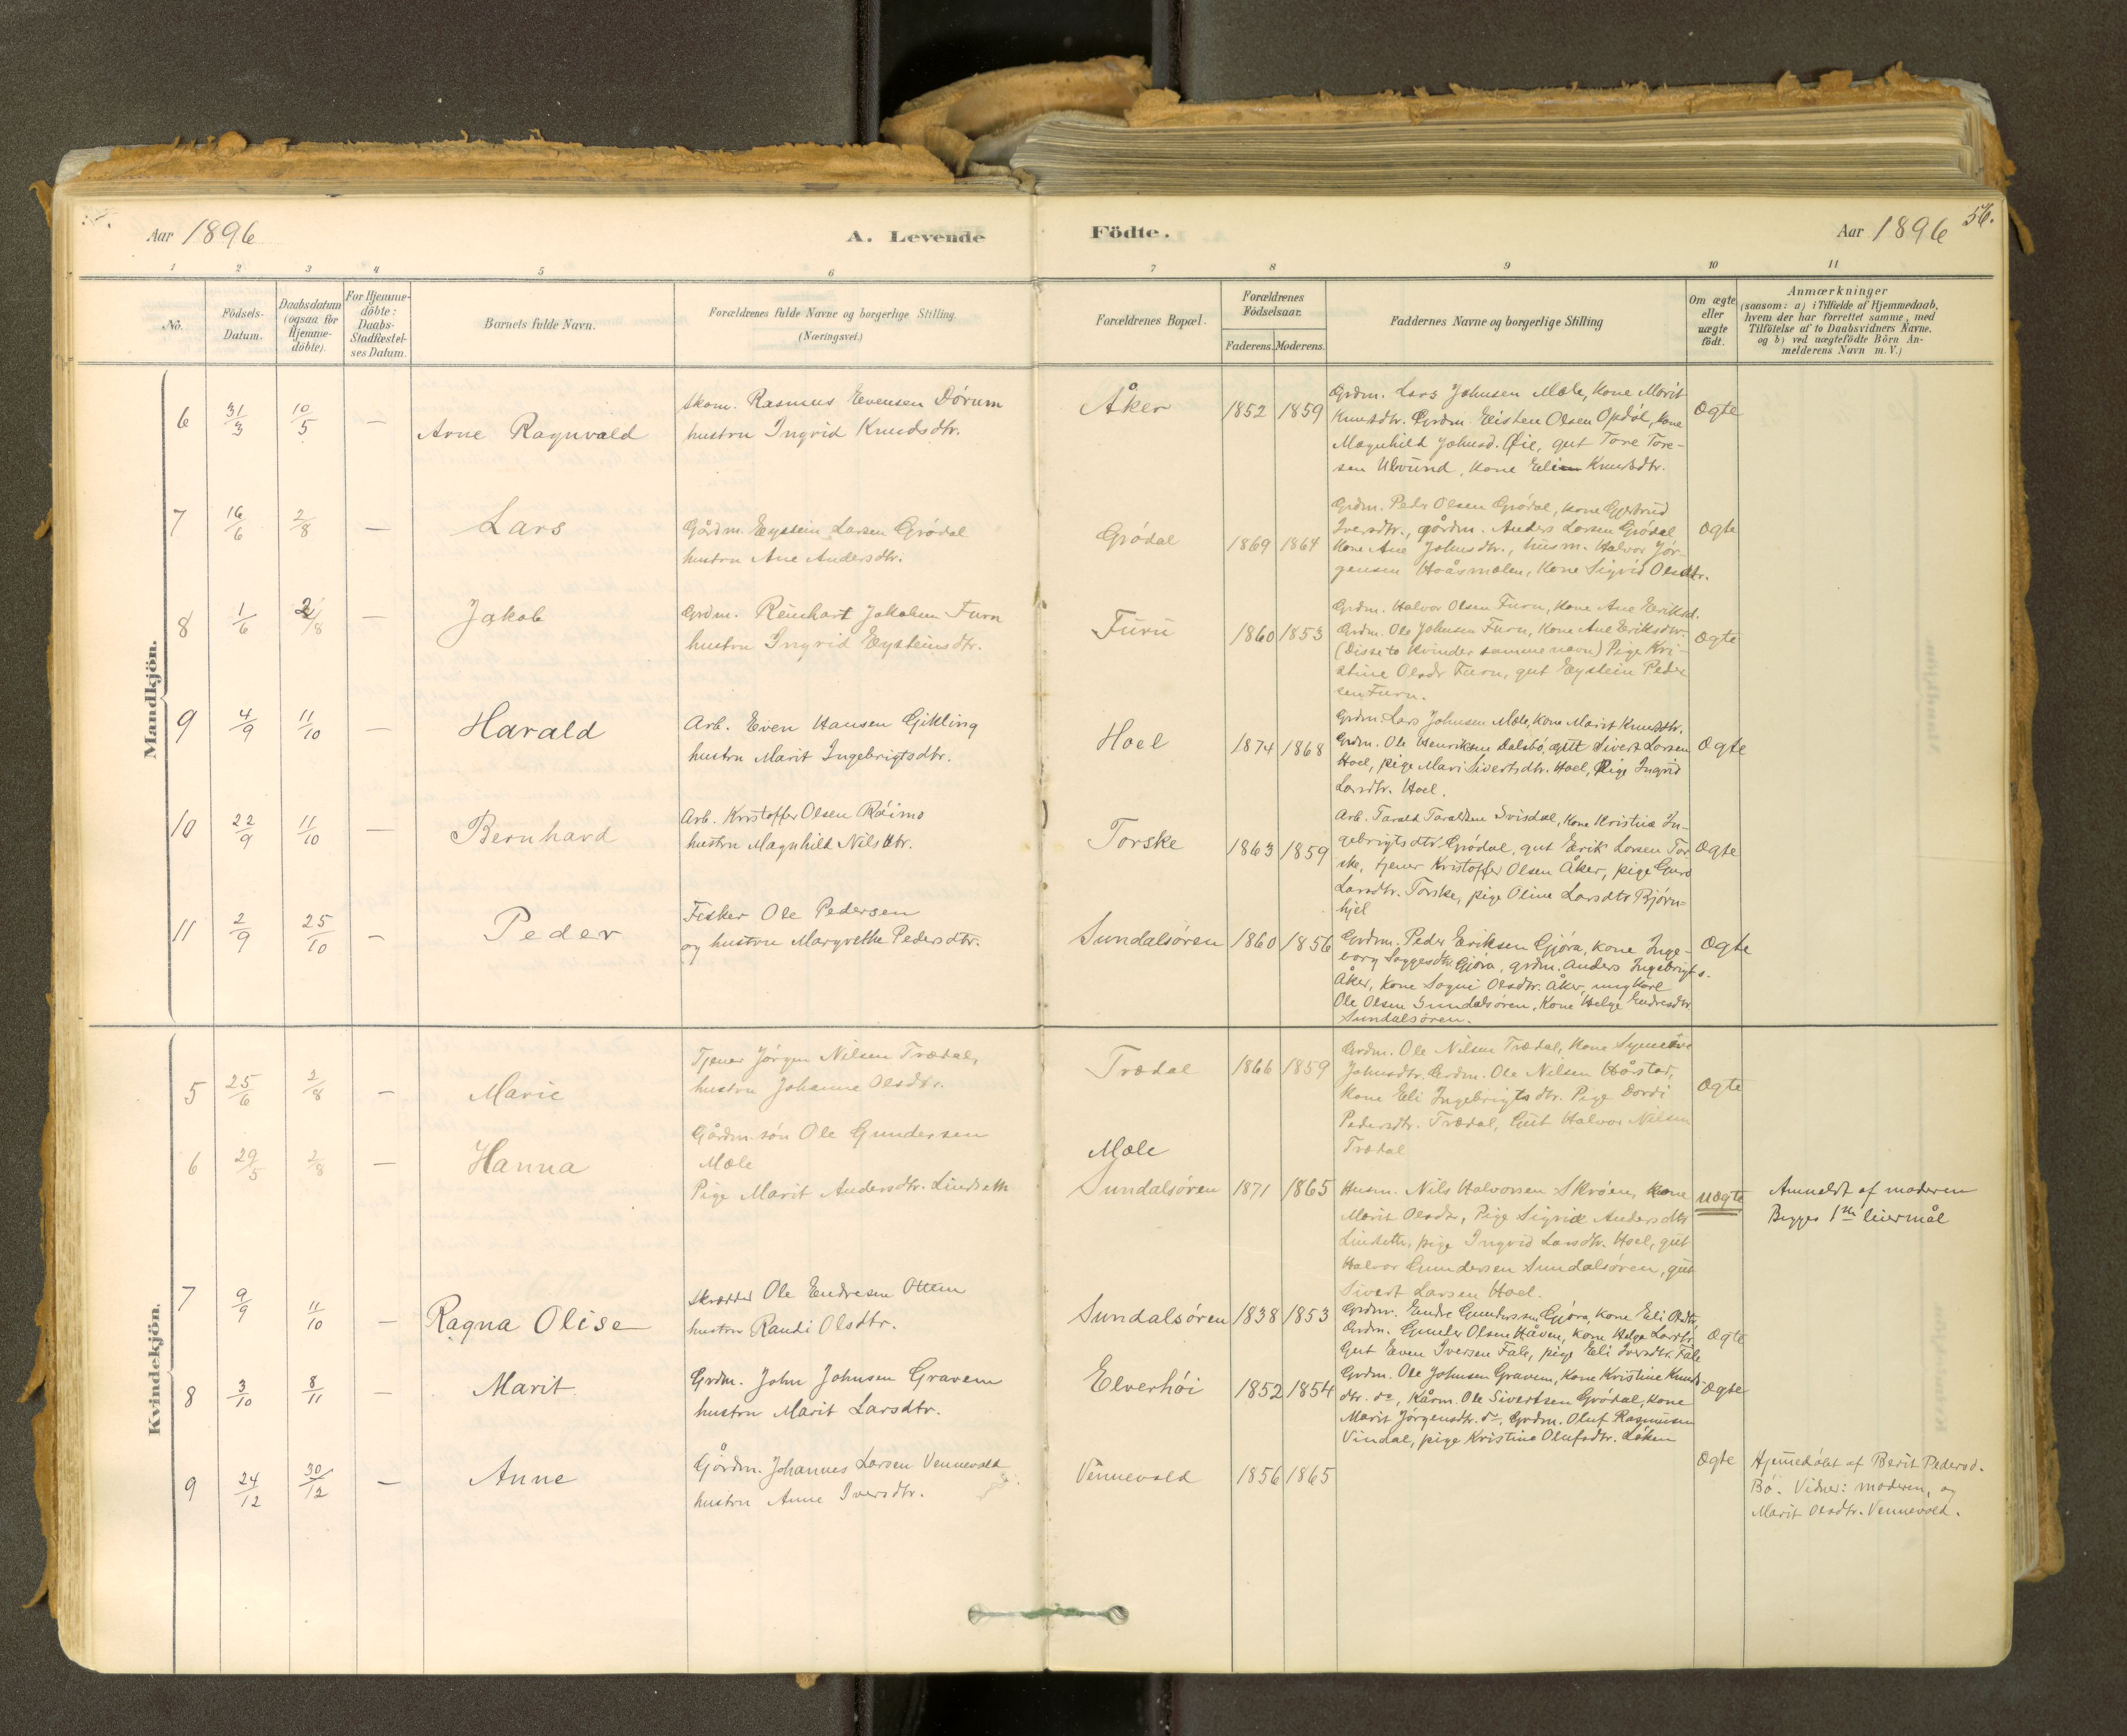 Aar 1896
A. Levende
Födte.
Aar 1896
56.
1 2 3 4 5 6 7 8 9 10 11
No.
Födsels-
Datum.
Daabsdatum
(ogsaa for
Hjemme-
döbte).
For Hjemme-
döbte:
Daabs-
Stadfæstel-
ses Datum.
Barnets fulde Navn.
Forældrenes fulde Navne og borgerlige Stilling
(Næringsvei.)
Forældrenes Bopæl.
Forældrenes
Födselsaar.
Faderens. Moderens.
Faddernes Navne og borgerlige Stilling
Om ægte
eller
uægte
födt.
Anmærkninger
(saasom: a) i Tilfælde af Hjemmedaab,
hvem der har forrettet samme, med
Tilföielse af to Daabsvidners Navne.
og b) ved uægtefödte Börn An-
melderens Navn m.V.)
Mandkjön.
6 31/3 10/5 — Arne Ragnvald
Skom. Rasmus Evensen Dørum
hustru Ingrid Knudsdtr.
Åker 1852 1859
Grdm. Lars Johnsen Mæle, kone Marit
Knudsdtr. Grdm. Eisten Olsen Opdøl, kone
Magnhild Johnsd. Øie, gut Tore Tore-
sen Ulvund, kone Eli Knudsdtr.
Ægte
7 16/6 2/8 — Lars
Gårdm. Eystein Larsen Grødal
hustru Ane Andersdtr.
Grødal 1869 1864
Grdm. Peder Olsen Grødal, kone Gjertrud
Iversdtr., gårdm. Anders Larsen Grødal
kone Ane Johnsdtr., husm. Halvor Jør-
gensen Hoåsmælen, kone Sigrid Olsdtr.
Ægte
8 1/6 2/8 — Jakob
Grdm. Reinhart Jakobsen Furu
hustru Ingrid Eysteinsdtr.
Furu 1860 1853
Grdm. Halvor Olsen Furu, kone Ane Eriksd.
Grdm. Ole Johnsen Furu, kone Ane Eriksdtr.
(Disse to kvinder samme navn) Pige Kri-
stine Olsdr Furu, gut Eystein Peder
sen Furu.
Ægte
9 4/9 11/10 — Harald
Arb. Even Hansen Gikling
hustru Marit Ingebrigtsdtr.
Hoel 1874 1868
Grdm. Lars Johnsen Mæle, kone Marit Knudsdtr.
Grdm. Ole Henriksen Dalsbø, gut Sivert Larsen
Hoel, pige Mari Sivertsdtr. Hoel, Pige Ingrid
Larsdtr. Hoel.
Ægte
10 22/9 11/10 — Bernhard
Arb. Kristoffer Olsen Røimo
hustru Magnhild Nilsdtr.
Torske 1863 1859
Arb. Tarald Taraldsen Svisdal, kone Kristine In-
gebrigtsdtr. Grødal, gut Erik Larsen Tor
ske, tjener Kristoffer Olsen Åker, pige Guro
Larsdtr. Torske, pige Oline Larsdtr Bjørn-
hjel
Ægte
11 2/9 25/10 — Peder
Fisker Ole Pedersen
og hustru Margrethe Pedersdtr.
Sundalsøren 1860 1856
Grdm. Peder Eriksen Gjøra, kone Inge-
borg Saggesdtr. Gjøra, grdm. Anders Ingebrigts.
Åker, kone Sogni Olsdtr. Åker, ungkarl
Ole Olsen Sundalsøren, kone Helge Endresdtr
Sundalsøren.
Ægte
Kvindekjön.
5 25/6 2/8 — Marie
Tjener Jørgen Nilsen Trædal,
hustru Johanne Olsdtr.
Trædal 1866 1859
Grdm. Ole Nilsen Trædal, kone Synnøve
Johnsdtr. Grdm. Ole Nilsen Hårstad,
kone Eli Ingebrigtsdtr. Pige Dordi
Pedersdtr. Trædal, Gut Halvor Nilsen
Trædal
Ægte
6 29/5 2/8 — Hanna
Gårdm. søn Ole Gundersen
Mæle
Pige Marit Andersdtr. Lindseth
Mæle
Sundalsøren 1871 1865
Husm. Nils Halvorsen Skrøen, kone
Marit Olsdtr, Pige Sigrid Andersdtr
Lindseth, pige Ingrid Larsdtr. Hoel, gut
Halvor Gundersen Sundalsøren, gut
Sivert Larsen Hoel.
uægte
Anmeldt af moderen
Begges 1ste leiermål
7 9/9 11/10 — Ragna Olise
Skrædder Ole Endresen Ottem
hustru Randi Olsdtr.
Sundalsøren 1838 1853
Grdm. Endre Gundersen Gjøra, kone Eli Olsdtr,
Grdm. Gunder Olsen Håven, kone Helga Larsdtr.
Gut Even Iversen Fale, pige Eli Iversdtr. Fale
Ægte
8 3/10 8/11 — Marit
Grdm. John Johnsen Gravem
hustru Marit Larsdtr.
Elverhøi 1852 1854
Grdm. Ole Johnsen Gravem, kone Kristine Knuds-
dtr. do, Kårm. Ole Sivertsen Grødal, kone
Marit Jørgensdtr. do, Grdm. Oluf Rasmussen
Vindal, pige Kristine Olufsdtr. Løken
Ægte
9 24/12 30/12 — Anne
Gårdm. Johannes Larsen Vennevold
hustru Anne Iversdtr.
Vennevold 1856 1865
Ægte
Hjemmedøbt af Berit Pedersd.
Bø. Vidner: moderen, og
Marit Olsdtr. Vennevold.